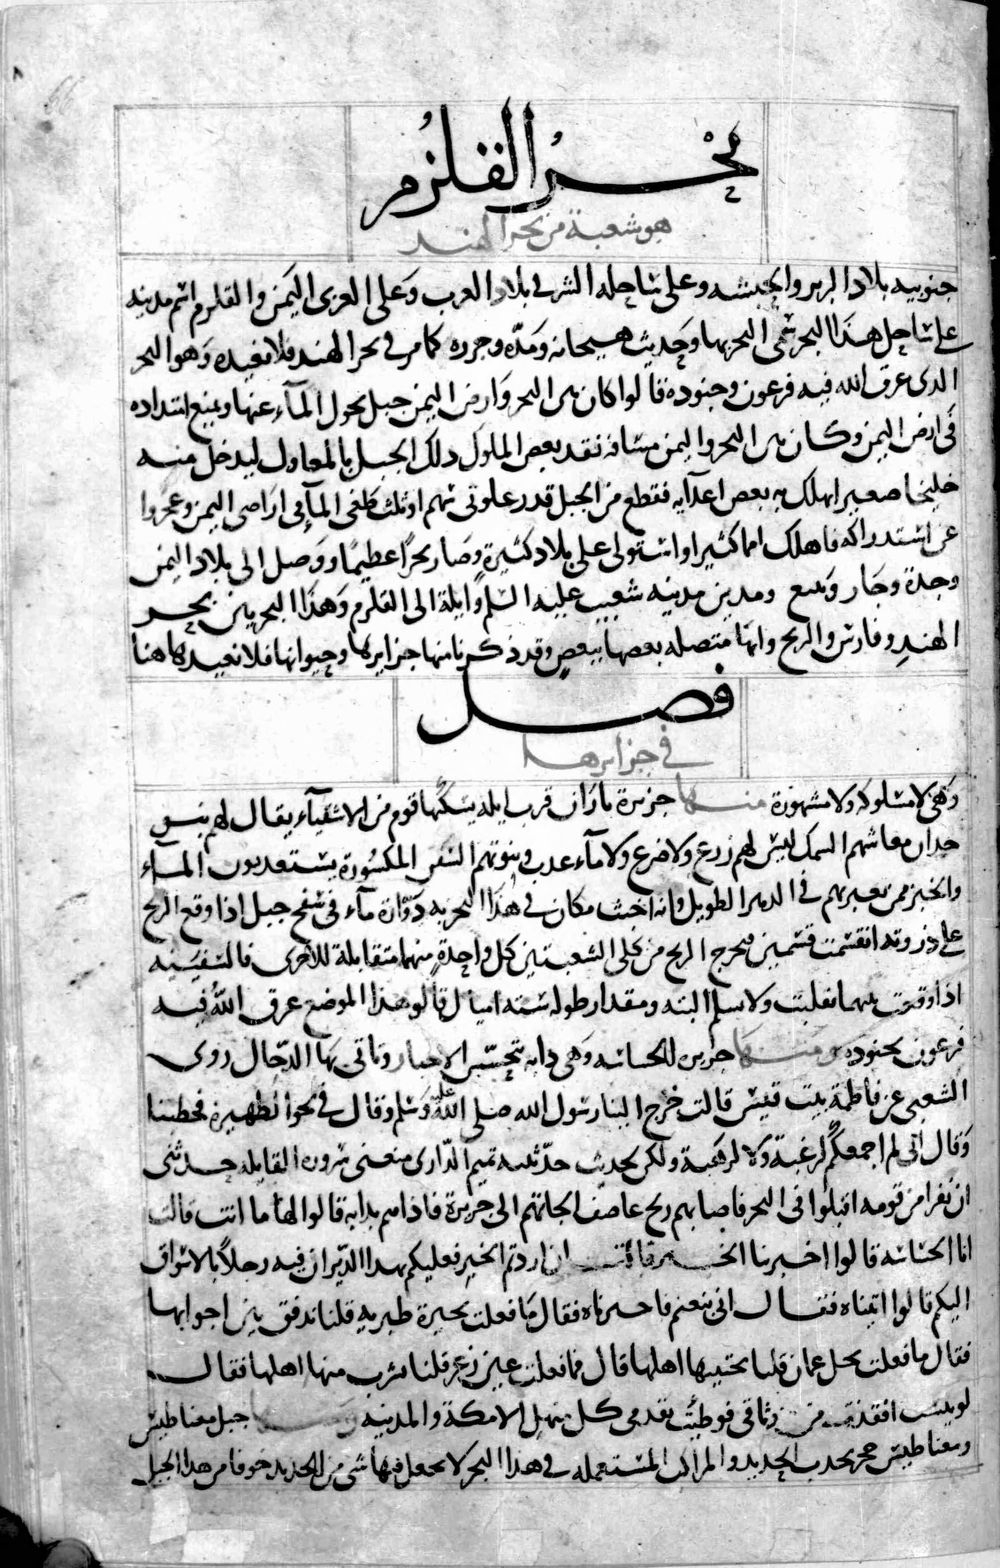 بحر القلزم
هو شعبة من بحر الهند
جنوبيه بلاد البربر والحبشه وعلى ساحله الشرقى بلاد العرب وعلى الغربى اليمن والقلزم اسم مدينه
على ساحل هذا البحر سمى البحر بها وحديث هيجانه ومدّه وجزره كما مر فى بحر الهند فلا نعيده وهو البحر
الذى غرق الله فيه فرعون وجنوده قالوا كان بين البحر وارض اليمن جبل يحول المآء عنها ويمنع امتداده
فى ارض اليمن وكان بين البحر واليمن مسافه فقد بعض الملوك ذلك الجبل بالمعاول ليدخل منه
خليجا صغيرا يهلك به بعض اعدآيه فقطع من الجبل قدر غلوتى سهم او ثلث فطغى المآء فى اراضى اليمن وعجزوا
عن استدراكه فاهلك امما كثيرا واستولى على بلاد كثيرة وصار بحرا عظيما ووصل الى بلاد اليمن
وجدة وجار وينبع ومدين مدينه شعيب عليه السلم وايلة الى القلزم وهذا البحر بين بحر
الهند وفارس والزنج وانها متصله بعضها ببعض وقد ذكرنا منها جزايرها وحيوانها فلا نعيدها هاهنا
فصل
فى جزايرها
وهى لا مسلوكه ولا مشهورة منها جزيرة تاران قرب ايله يسكنها قوم من الاشقيآء يقال لهم بنو
جدان معاشهم السمك ليس لهم زرع ولا ضرع ولا مآء عذب وبيوتهم السفن المكسورة يستعذبون المآء
والخبز ممن يعبر بهم فى الدهر الطويل وانه اخبث مكان فى هذا البحر به دوارة مآء فى سفح جبل اذا وقع الريح
على ذروته انقسمت قسمين فيخرج الريح من كلى الشعبتين كل واحدة منهما متقابلة للاخرى فالسفينه
اذا وقعت بينهما تقلبت ولا تسلم البته ومقدار طوله سته اميال قالو هذا الموضع غرق الله فيه
فرعون بجنوده ومنها جزيره الجساسه وهى دابه تتجسس الاخبار وتاتى بها الدجال روى
الشعبى عن فاطمة بنت قيس قالت خرج الينا رسول الله صلى الله عليه وسلم وقال فى نحو الظهيرة فخطبنا
وقال انى لم اجمعكم لرغبة ولا لرهبة ولكن بحديث حدثنيه تميم الدارى منعنى سروره القايله حدثنى
ان نفرا من قومه اقبلوا فى البحر فاصابهم ريح عاصف الجاتهم الى جزيرة فاذا هم بدابه قالوا لها ما انت قالت
انا الجساسه قالوا اخبرينا الخبر فقالت ان اردتم الخبر فعليكم بهذا الدير ان فيه رجلا بالاشواق
اليكم قالوا اتيناه فقال انى نبعتم فاخبرناه فقال ما فعلت بحيرة طبريه قلنا تدفق بين اجوابها
فقال ما فعلت نخل عمان قلنا يجتنيها اهلها قال فما فعلت عين زغر قلنا يشرب منها اهلها فقال
لو يبست افقدت من وثاقى فوطيت بقدمى كل منهل الا مكة والمدينه ومنها جبل مغناطيس
ومغناطيس حجر يجذب الحديد والمراكب المستعمله فى هذا البحر لا يجعل فيها شى من الحديد خوفا من هذا الجبل